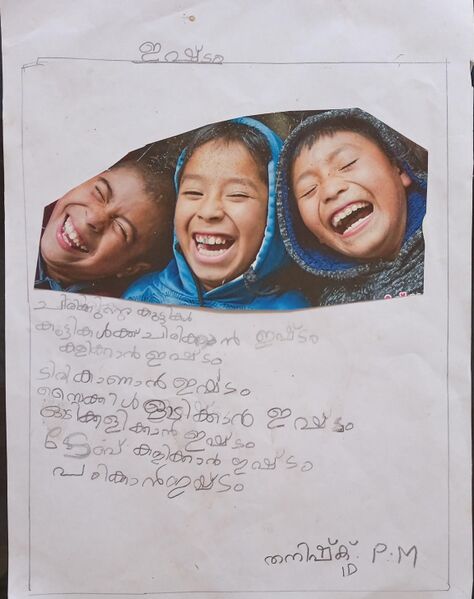 ഇഷ്ടം
ചിരിക്കുന്ന കുട്ടികൾ
കുട്ടികൾക്ക് ചിരിക്കാൻ ഇഷ്ടം
കളിക്കാൻ ഇഷ്ടം
ടിവി കാണാൻ ഇഷ്ടം
സൈക്കിൾ ഓടിക്കാൻ ഇഷ്ടം
ഓടിക്കളിക്കാൻ ഇഷ്ടം
കളിക്കാൻ ഇഷ്ടം
ഇഷ്ടം
തനിഷ്ക് P.M
1D